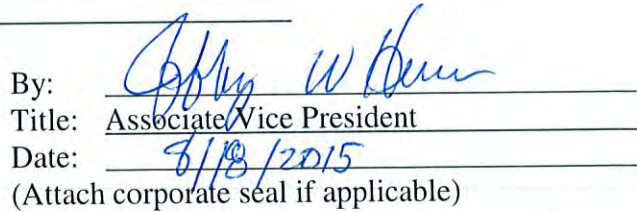 By: W
Title: Associate Vice President
Date: 8/18/2015
(Attach corporate seal if applicable)